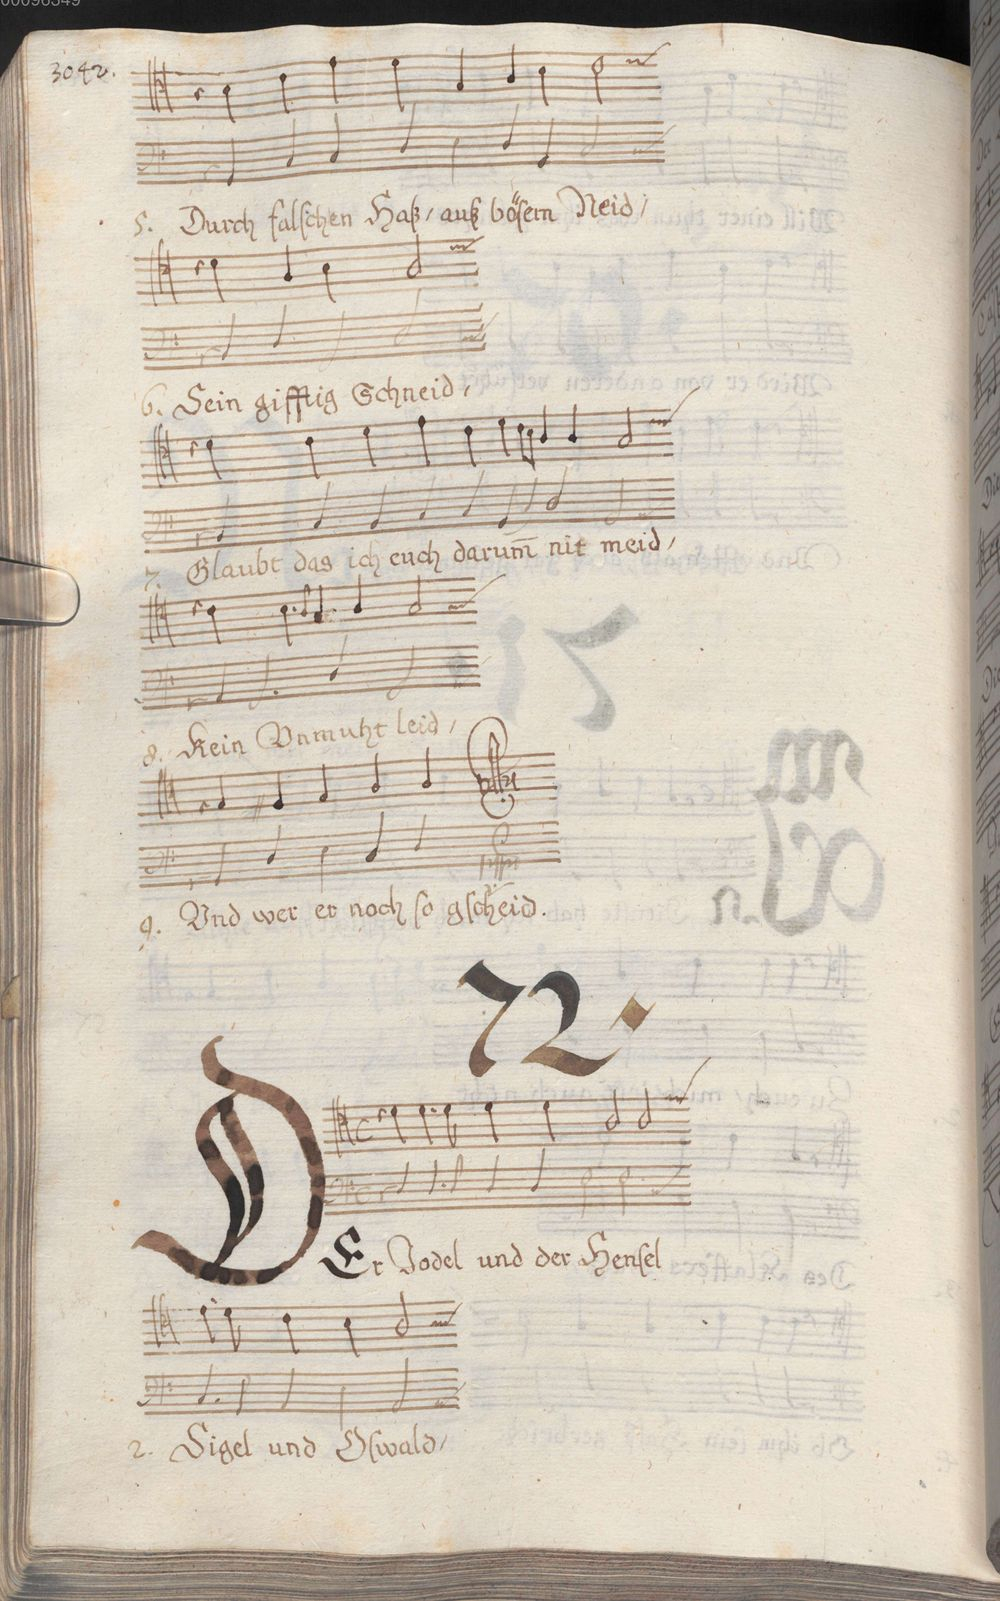 3042.
5. Durch falschen Haß/ auß bösem Neid/
6. Sein gifftig Schneid/
7. Glaubt das ich euch darum̃ nit meid/
8. Kein Vnmuht leid/
9. Vnd wer er noch so gscheid.
72.
DEr Jodel und der Hensel
2. Sigel und Oswald/